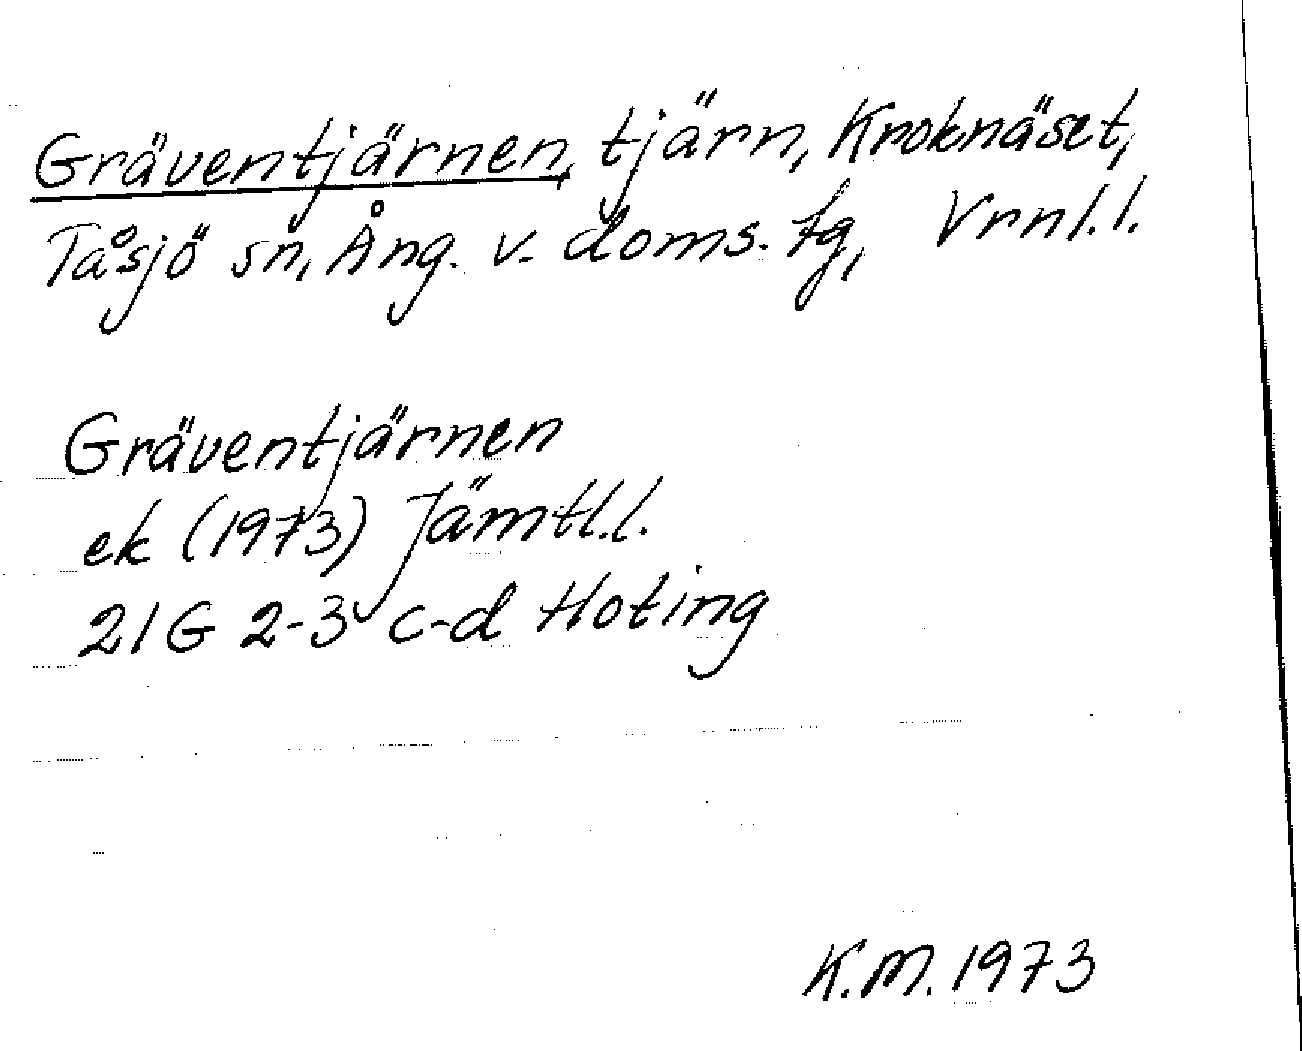 Gräventjärnen, tjärn, Kroknäset,
Tåsjö sn, Ång. v. doms. tg, Vrnl.l.
Gräventjärnen
ek (1973) Jämtl.l.
21G 2-3 c-d Hoting
K.M. 1973